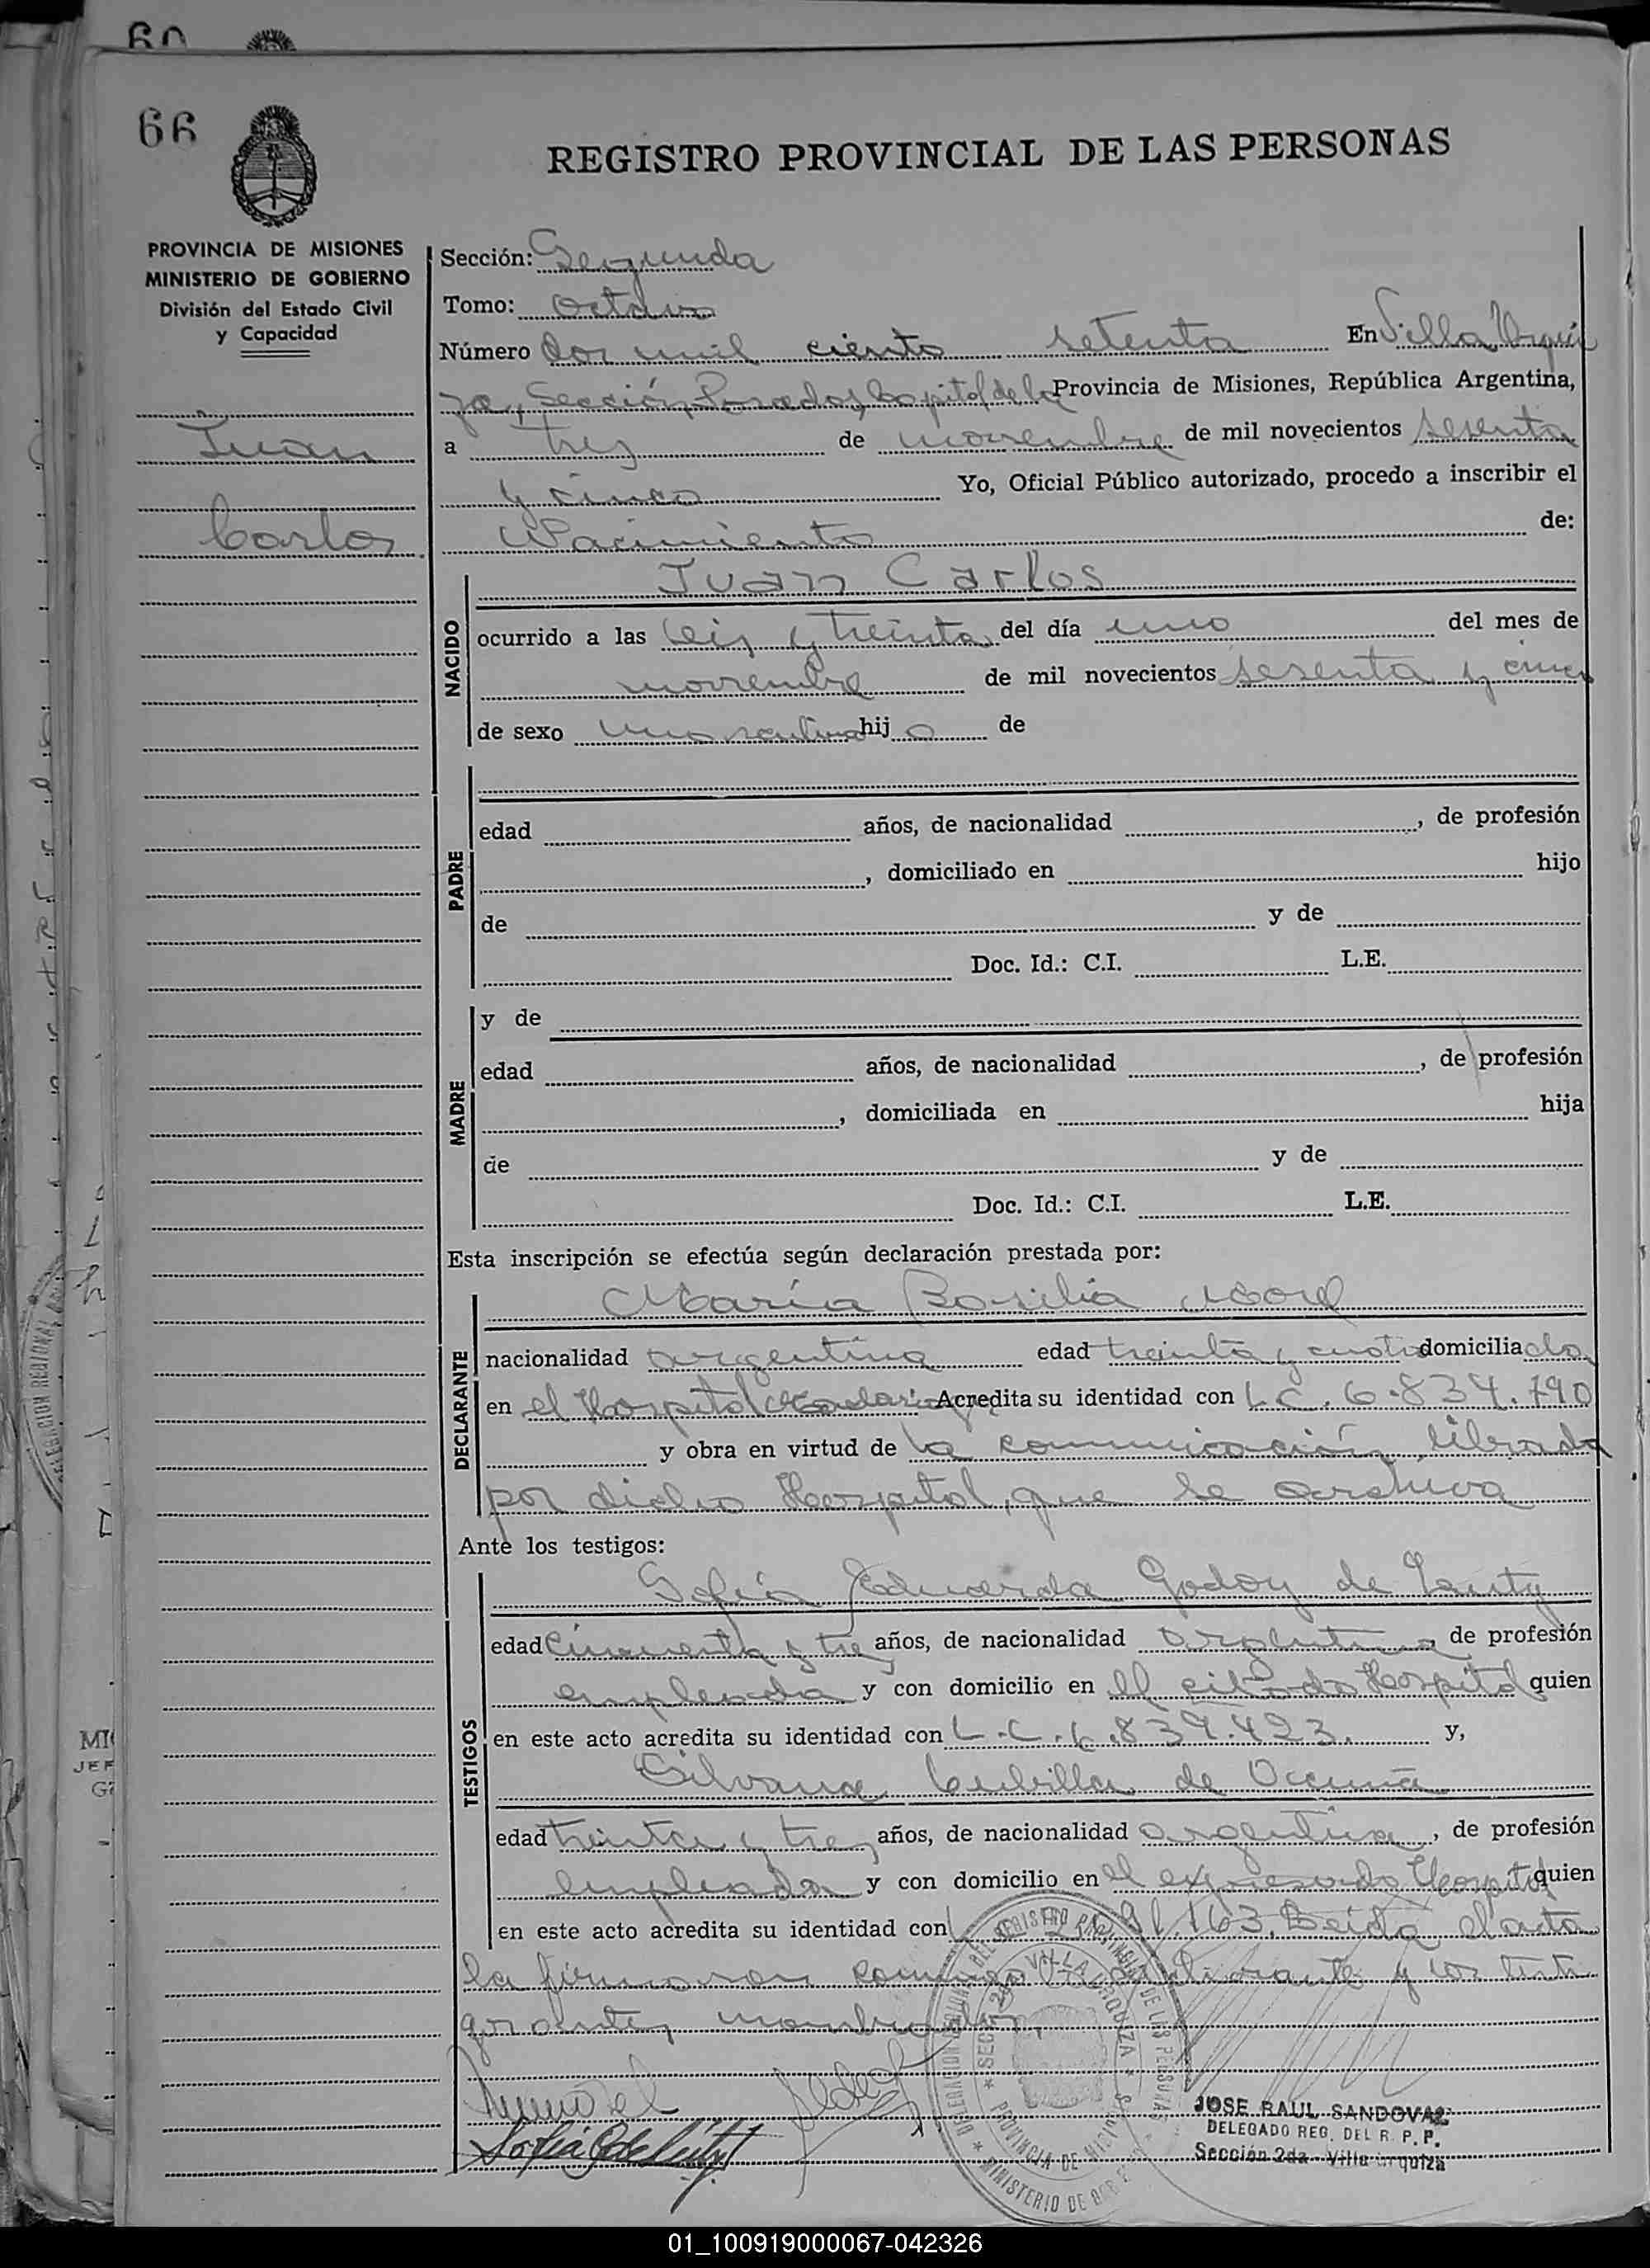 66
REGISTRO PROVINCIAL DE LAS PERSONAS
PROVINCIA DE MISIONES
MINISTERIO DE GOBIERNO
División del Estado Civil
y Capacidad
Juan
Carlos
Sección: Segunda
Tomo: Octavo
Número Dos mil ciento setenta En Villa Urqui
za, Sección Posadas, Capital de la Provincia de Misiones, República Argentina,
a tres de noviembre de mil novecientos sesenta
y cinco Yo, Oficial Público autorizado, procedo a inscribir el
Nacimiento de:
NACIDO
Juan Carlos
ocurrido a las seis y treinta del día uno del mes de
noviembre de mil novecientos sesenta y cinco
de sexo masculino hijo de
PADRE
edad años, de nacionalidad , de profesión
, domiciliado en hijo
de y de
Doc. Id.: C.I. L.E.
MADRE
y de
edad años, de nacionalidad , de profesión
, domiciliada en hija
de y de
Doc. Id.: C.I. L.E.
Esta inscripción se efectúa según declaración prestada por:
DECLARANTE
María Basilia
nacionalidad argentina edad treinta y cuatro domiciliada
en el Hospital Acredita su identidad con L.C. 6.834.790
y obra en virtud de la comunicación librada
por dicho Hospital, que se archiva
Ante los testigos:
TESTIGOS
Sofía Eduarda Godoy de
edad cincuenta y tres años, de nacionalidad argentina, de profesión
empleada y con domicilio en el citado Hospital quien
en este acto acredita su identidad con L.C. 6.839.423. y,
Silvana Cubilla de
edad treinta y tres años, de nacionalidad argentina, de profesión
empleada y con domicilio en el expresado Hospital quien
en este acto acredita su identidad con 163. Leída el acta
la firmaron conmigo declarante y los testi
gos antes nombrados.
JOSE RAUL SANDOVAL
DELEGADO REG. DEL R. P. P.
Sección 2da - Villa Urquiza
01_100919000067-042326